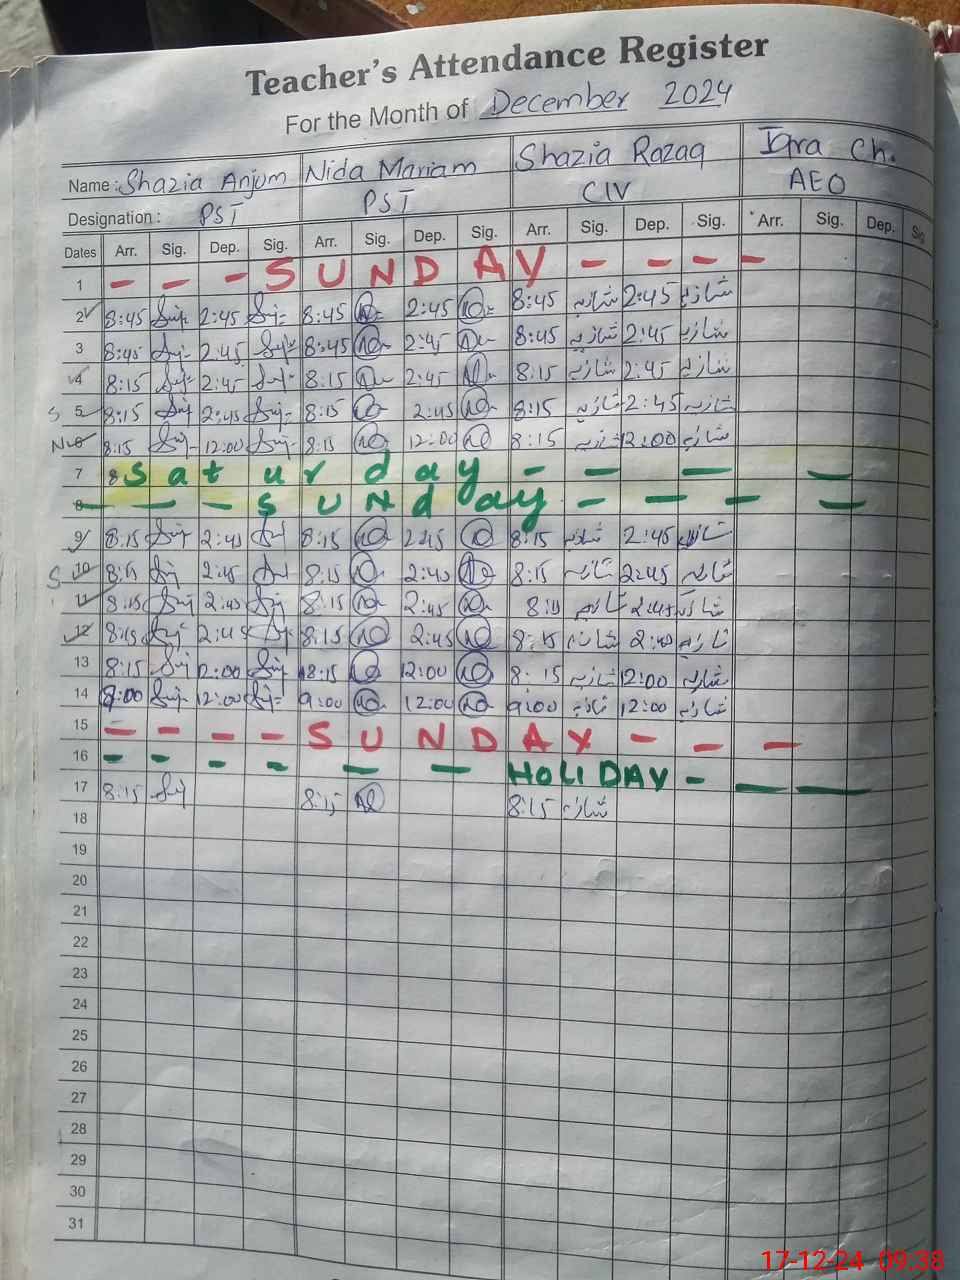 Teacher's Attendance Register
For the Month of December 2024
Name : Shazia Anjum Nida Mariam Shazia Razaq Iqra Ch.
Designation : PST PST CIV AEO
Dates Arr. Sig. Dep. Sig. Arr. Sig. Dep. Sig. Arr. Sig. Dep. Sig. Arr. Sig. Dep. Sig
1 - - - SUNDAY - - - -
2 8:45 2:45 8:45 2:45 8:45 شازیہ 2:45 شازیہ
3 8:45 2:45 8:45 2:45 8:45 شازیہ 2:45 شازیہ
4 8:15 2:45 8:15 2:45 8:15 شازیہ 2:45 شازیہ
S 5 8:15 2:45 8:15 2:45 8:15 شازیہ 2:45 شازیہ
N 6 8:15 12:00 8:15 12:00 8:15 شازیہ 12:00 شازیہ
7 8 Saturday - - - -
8 - - - SUNday - - - -
9 8:15 2:45 8:15 2:45 8:15 شازیہ 2:45 شازیہ
S 10 8:15 2:45 8:15 2:45 8:15 شازیہ 2:45 شازیہ
11 8:15 2:45 8:15 2:45 شازیہ 2:45 شازیہ
12 8:15 2:45 8:15 2:45 8:15 شازیہ 2:45 شازیہ
13 8:15 12:00 8:15 12:00 8:15 شازیہ 12:00 شازیہ
14 9:00 12:00 9:00 12:00 9:00 شازیہ 12:00 شازیہ
15 - - - - SUNDAY - - -
16 - - - - - - HOLIDAY - - -
17 8:15 8:15 8:15 شازیہ
18
19
20
21
22
23
24
25
26
27
28
29
30
31
17-12-24 09:38